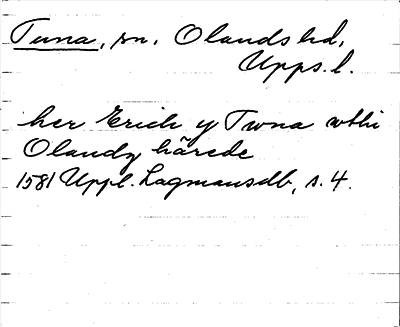 Tuna, sn. Olands hd,
Upps. l.
her Erich y Twna wthi
Olandz härede
1581 Uppl. Lagmansdb, s. 4.